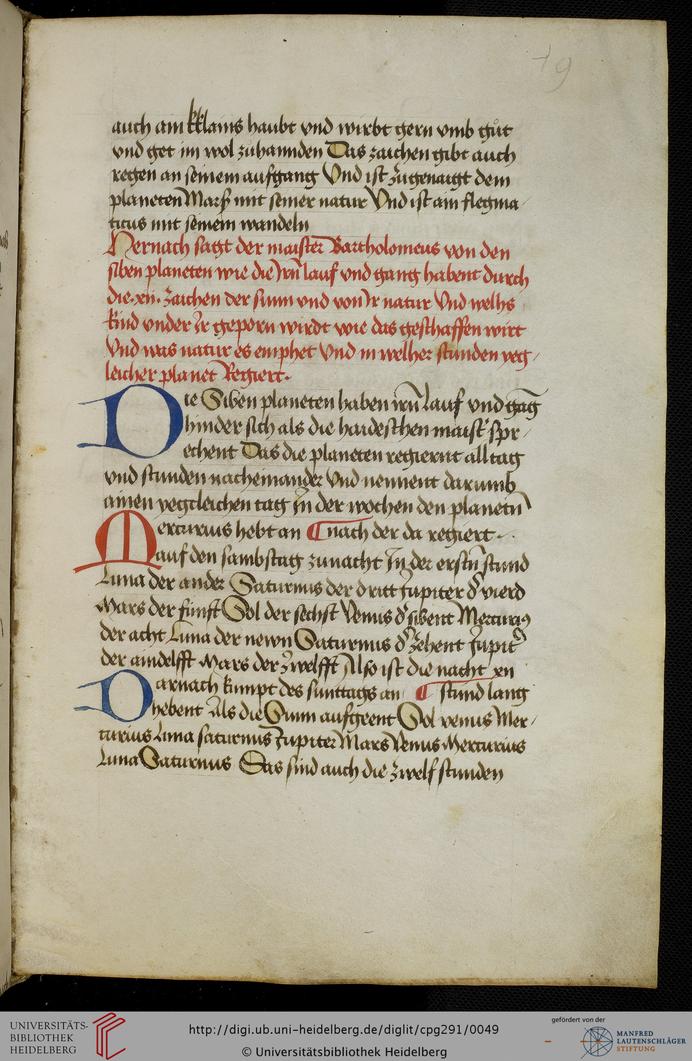 19
auch ain klains haubt vnd wirbt gern vmb gůt
vnd get im wol zuhannden Das zaichen gibt auch
regen an seinem aufgang Vnd ist zugenaigt dem
planeten Mars mit seiner natur Vnd ist ain flegma-
ticus mit seinem wandeln
Hernach sagt der maister Bartholomeus von den
siben planeten wie die irn̄ lauf vnd gang habent durch
die .xij. zaichen der sunn vnd von Ir natur Vnd welhs
kind vnder Ir geporn wirdt wie das geschaffen wirt
Vnd was natur es emphet Vnd in welher stunden yeg-
leicher planet Regiert.
DIe Siben planeten haben irn̄ lauf vnd gāg
hinder sich als die haideschen maist' spr-
echent Das die planeten regiernt all tag
vnd stunden nacheinander Vnd nennent darumb
ainen yegcleichen tag In der wochen den planetn̄
Mercurius hebt an ¶ nach der da regiert.
auf den sambstag zunacht In der erstn̄ stund
Luna der ander Saturnus der dritt Jupiter d' vierd
Mars der funft Sol der sechst Venus d' sibent Mercurius
der acht Luna der newn Saturnus d' zehent Jupit'
der aindelfft Mars der zwelfft Also ist die nacht xij
Darnach kumpt des sunttags an ¶ stund lang
hebent Als die Sunn aufgeent Sol venus Mer-
curius luna saturnus Jupiter Mars Venus Mercurius
Luna Saturnus Das sind auch die zwelf stunden
UNIVERSITÄTS-
BIBLIOTHEK
HEIDELBERG
http://digi.ub.uni-heidelberg.de/diglit/cpg291/0049
© Universitätsbibliothek Heidelberg
gefördert von der
MANFRED
LAUTENSCHLÄGER
STIFTUNG